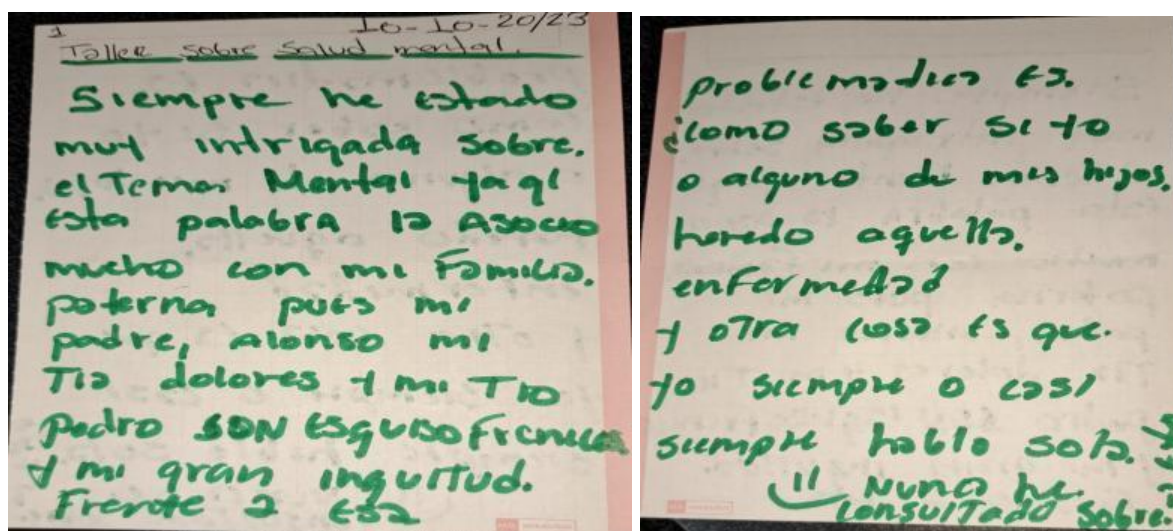 1
10-10-20/23
Taller sobre Salud mental.
Siempre he estado
muy intrigada sobre.
el Tema Mental ya q'
esta palabra la Asocio
mucho con mi Familia.
paterna pues mi
padre, alonso mi
Tia dolores y mi Tio
pedro SON Esquisofrenicos
y mi gran inquitud.
Frente a esa
problematica Es.
¿como saber si yo
o alguno de mis hijos,
heredo aquella.
enfermedad
y otra cosa Es que.
yo siempre o casi
siempre hablo sola.
Nunca he
consultado sobre